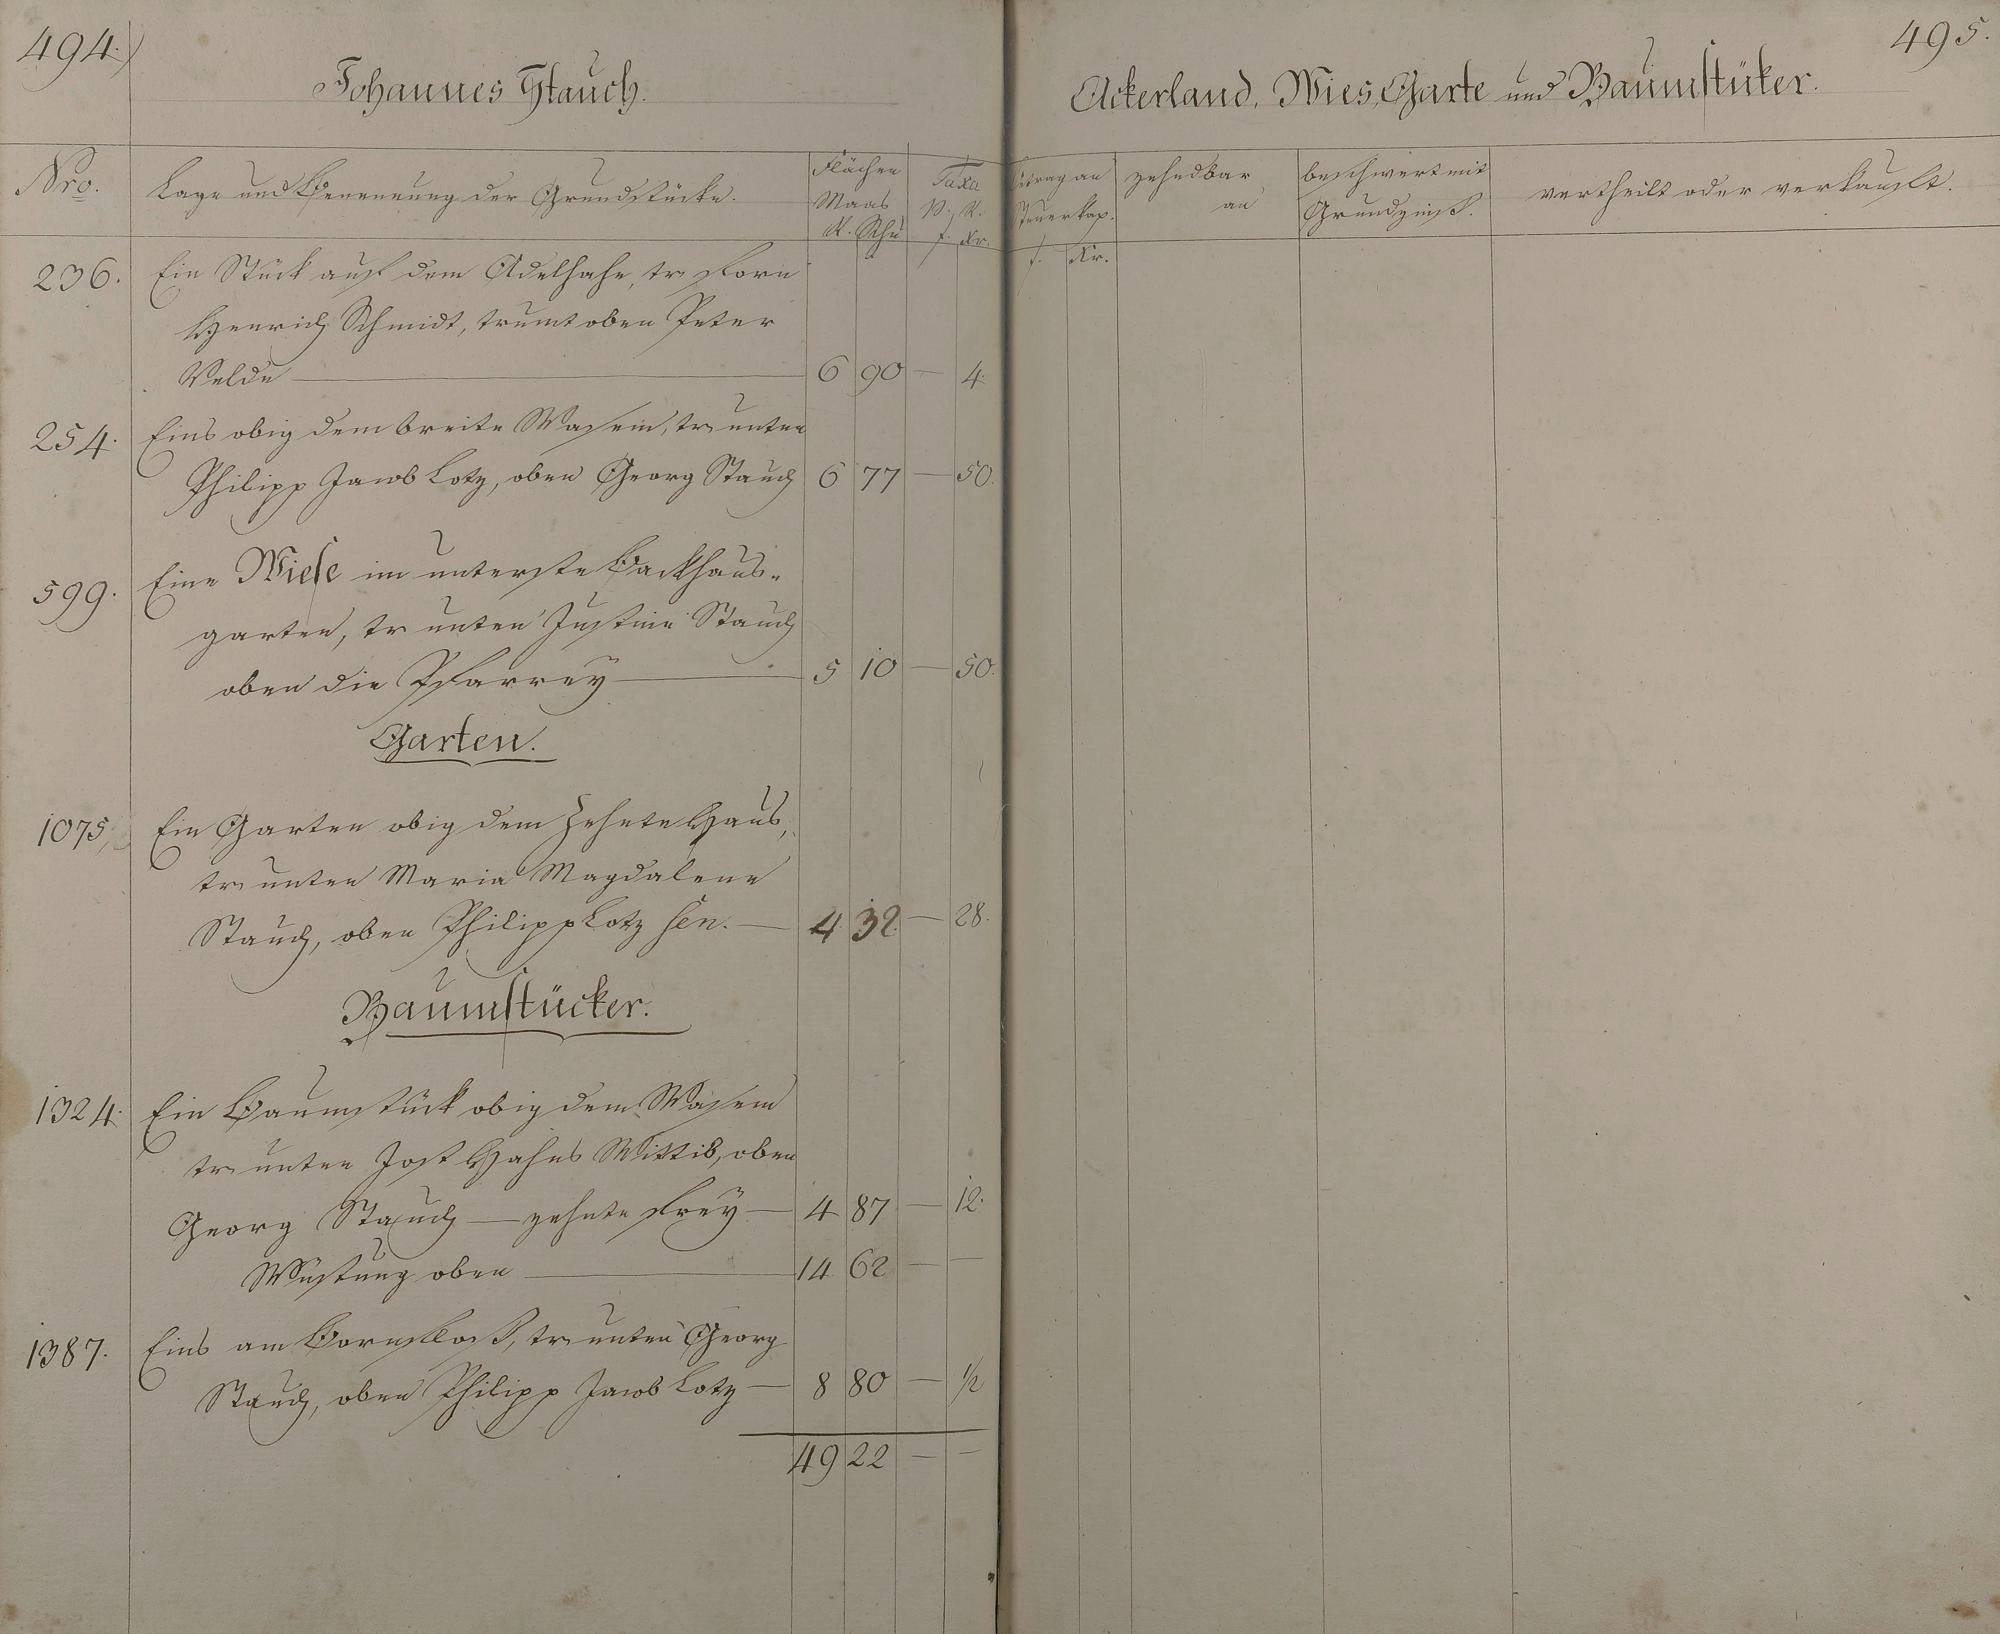 494.
Johannes Stauch.
Nro. Lage und Benennung der Grundstücke. Flächen Maas R. Schu Taxa p. R. f. Kr.
236. Ein Stück auf dem Adelhahn, tr. forn
Henrich Schmidt, trumt oben Peter
Velde — 6 90 — 4.
254. Eins obig dem breite Wasem, tr. unten
Philipp Jacob Lotz, oben Georg Stauch 6 77 — 50.
599. Eine Wiese im unterste Backhaus-
garten, tr. unten Justine Stauch
oben die Pfarrey — 5 10 — 50.
Garten.
1075, Ein Garten obig dem Zehnte Haus,
tr. unten Maria Magdalene
Stauch, oben Philipp Lotz sen. — 4 32. — 28.
Baumstücker.
1324. Ein Baumstück obig dem Wasem
tr. unten Jost Hahns Wittib, oben
Georg Stauch — zehnte frey — 4 87 — 12.
Wüstung oben — 14 62 — —
1387. Eins am Bornfloß, tr. unten Georg
Stauch, oben Philipp Jacob Lotz — 8 80 — 1/2
49 22 — —
495.
Ackerland, Wies, Garte und Baumstüker.
Beitrag an Steuerkap. f. Kr. zehndbar an beschwert mit Grundzinß. vertheilt oder verkauft.